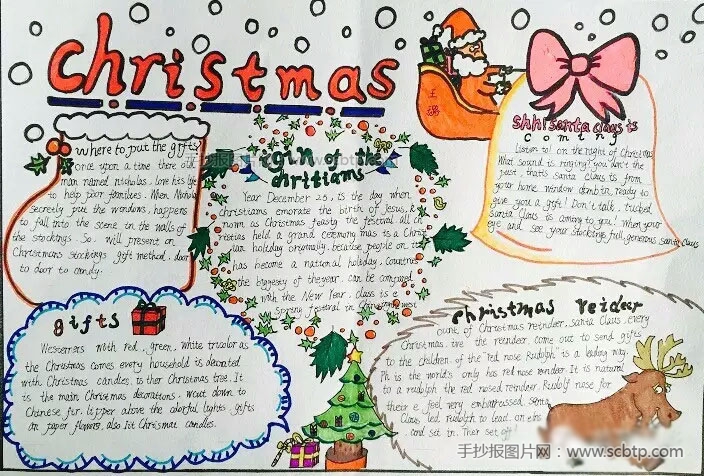 christmas
王璐
where to put the gifts
once upon a time there old
man named nicholas, love his life
to help poor families. When Nichola
secretly put the windows, happens
to fall into the scene in the walls of
the stockings. So, will present on
Christmas stockings gift method, door
to door to candy.
rgin of the
chritians
Year December 25, is the day when
christians emorate the birth of Jesus, &
norm as Christmas feasts the festival all ch
ristias held a grand ceremony mas is a Christ
ian holiday originally, because people on it
has become a national holiday, countries
the biggesty of the year. can be compared
with the New Year, class is e
Spring festival in
west
shh! santa claus is
Coming
Listen to! on the night of Christmas
What sound is ringing? you don't the
just, thats santa claus is from
your home window ready to
give you a gift! Don't talk,
santa Claus is coming to you! When your
eye and see your stockings full, generous santa Claus
gifts
Westerners with red, green, white tricolor as
the Christmas comes every household is decorated
with Christmas candles, is ther Christmas tree. It
is the main Christmas decorations. went down to
Chinese fir, tipper above the colorful lights, gifts
on paper flowers, also lit Christmas candles.
christmas reideer
ount of Christmas reindeer, santa Claus, every
Christmas, ive the reindeer come out to send gifts
to the children of the Red nose Rudolph is a leading way,
Ph is the world's only has red nose reindeer. It is natural
to a rudolph the red nosed reindeer. Rudolf nose for
there e feel very embarrassed, Santa
Claus led Rudolph to lead, on
and set in. Ther set off!
手抄报图片网：www.scbtp.com
手抄报图片网：www.scbtp.com
手抄报图片网：www.scbtp.com